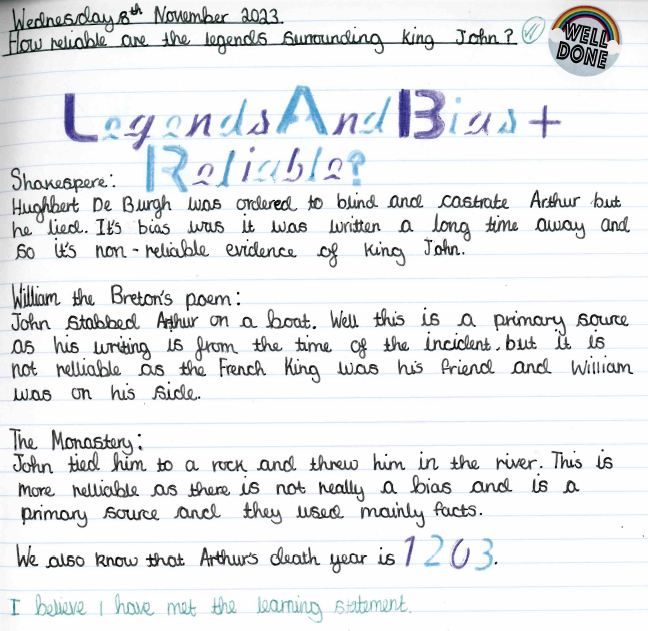 Wednesday 8th November 2023
How reliable are the legends surrounding King John?
WELL DONE
Legends And Bias +
Reliable?
Shakespere:
Hughbert De Burgh was ordered to blind and castrate Arthur but
he lied. It's bias was it was written a long time away and
so it's non-reliable evidence of King John.
William the Breton's poem:
John stabbed Arthur on a boat. Well this is a primary source
as his writing is from the time of the incident, but it is
not relliable as the French King was his friend and William
was on his side.
The Monastery:
John tied him to a rock and threw him in the river. This is
more relliable as there is not really a bias and is a
primary source and they used mainly facts.
We also know that Arthur's death year is 1203.
I believe I have met the learning statement.